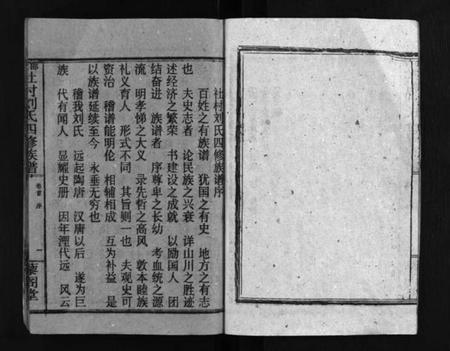 社村刘氏四修族谱序
百姓之有族谱 犹国之有史 地方之有志
也 夫史志者 论民族之兴衰 详山川之胜迹
述经济之繁荣 书建设之成就 以励国人 团
结奋进 族谱者 序尊卑之长幼 考血统之源
流 明孝悌之大义 录先哲之高风 敦本睦族
礼义育人 形式不同 其旨则一也 夫观史可
资治 稽谱能明伦 相辅相成 互为补益 是
以族谱延续至今 永垂无穷也
稽我刘氏 远起陶唐 汉唐以后 遂为巨
族 代有闻人 显耀史册 因年湮代远 风云
社村刘氏四修族谱
卷首 序
一